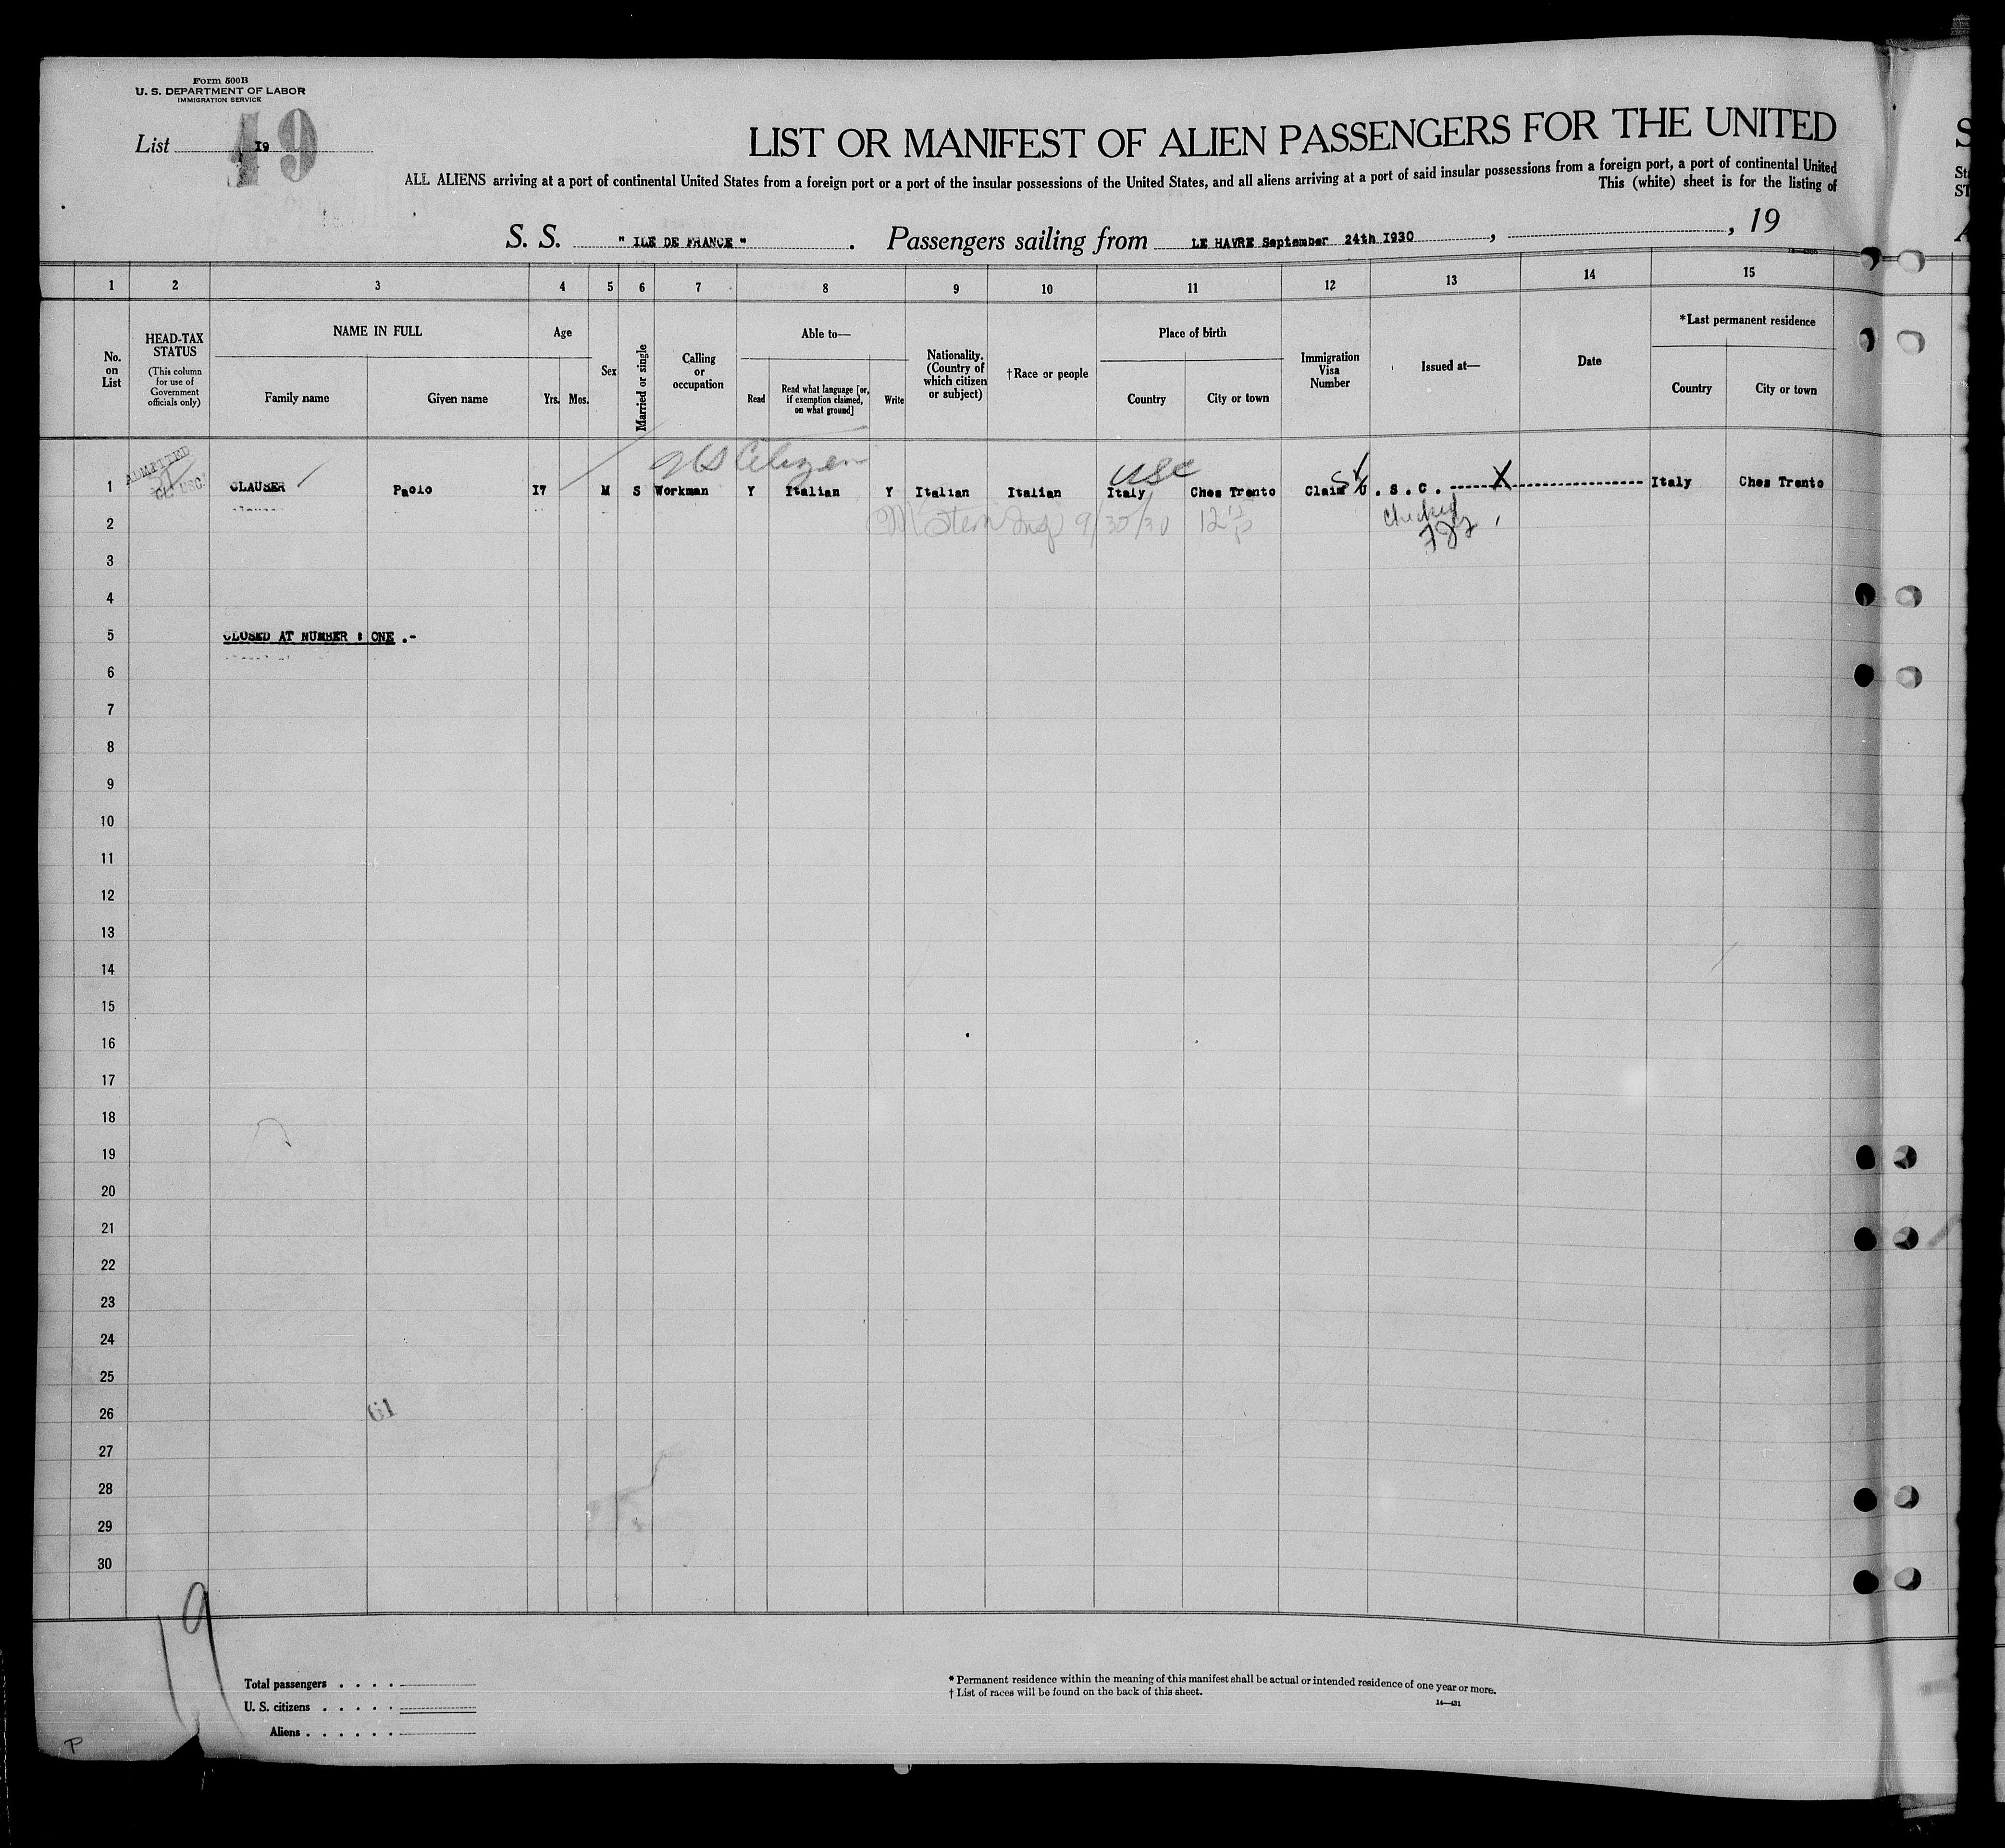 Form 500B
U. S. DEPARTMENT OF LABOR
IMMIGRATION SERVICE
List I9
49
LIST OR MANIFEST OF ALIEN PASSENGERS FOR THE UNITED
ALL ALIENS arriving at a port of continental United States from a foreign port or a port of the insular possessions of the United States, and all aliens arriving at a port of said insular possessions from a foreign port, a port of continental United
This (white) sheet is for the listing of
S. S. " ILE DE FRANCE " . Passengers sailing from LE HAVRE September 24th I930 , , 19
1 2 3 4 5 6 7 8 9 10 11 12 13 14 15
No. on List
HEAD-TAX STATUS
(This column for use of Government officials only)
NAME IN FULL
Family name Given name
Age
Yrs. Mos.
Sex
Married or single
Calling or occupation
Able to—
Read
Read what language [or, if exemption claimed, on what ground]
Write
Nationality. (Country of which citizen or subject)
†Race or people
Place of birth
Country City or town
Immigration Visa Number
Issued at—
Date
*Last permanent residence
Country City or town
ADMITTED
US Citizen
USC
1 CLAUSER Paolo I7 M S Workman Y Italian Y Italian Italian Italy Ches Trento Claim U. S. C. X Italy Ches Trento
2 9/30/30
checked
3
4
5 CLOSED AT NUMBER : ONE .-
6
7
8
9
10
11
12
13
14
15
16
17
18
19
20
21
22
23
24
25
26
27
28
29
30
19
Total passengers . . . .
U. S. citizens . . . . .
Aliens . . . . . .
* Permanent residence within the meaning of this manifest shall be actual or intended residence of one year or more.
† List of races will be found on the back of this sheet.
14—431
P